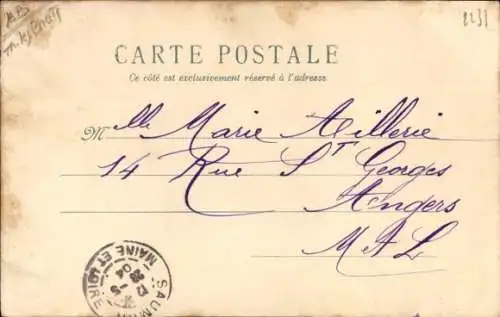 2231
CARTE POSTALE
Ce côté est exclusivement réservé à l'adresse
Mlle Marie Alillerie
14 Rue St Georges
Angers
M et L
SAUMUR
MAINE ET LOIRE
04